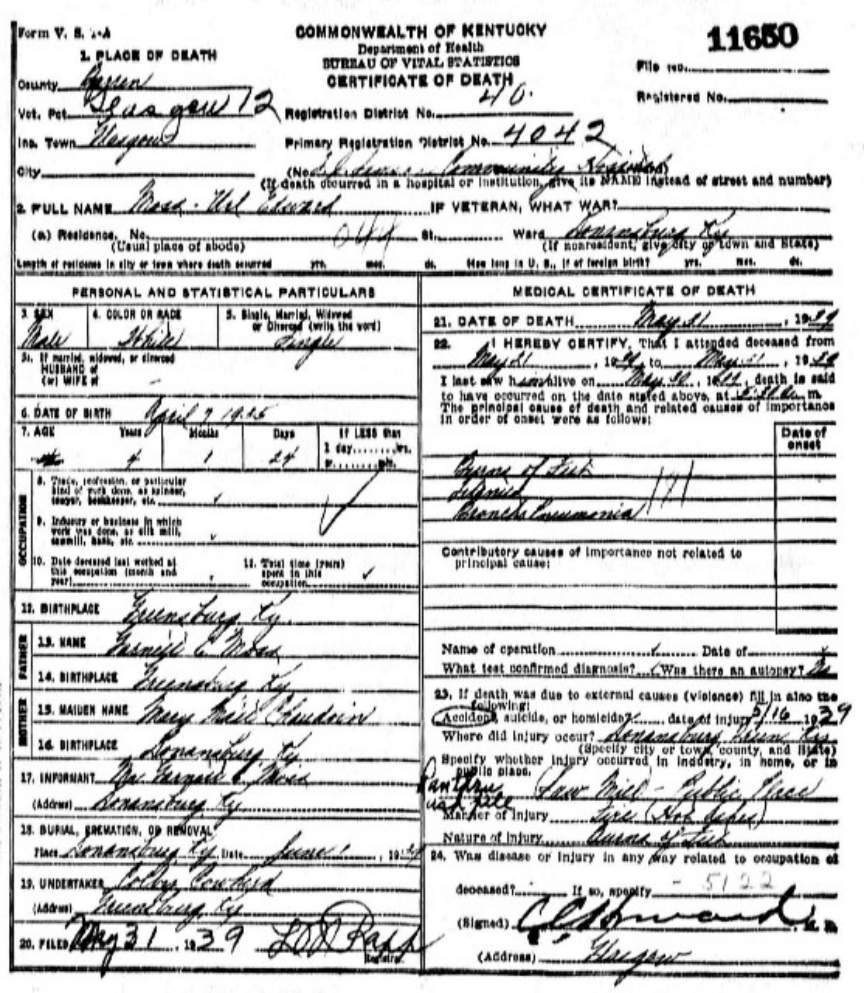 Form V. S. 1-A
COMMONWEALTH OF KENTUCKY
Department of Health
BUREAU OF VITAL STATISTICS
CERTIFICATE OF DEATH
11650
File no.
Registered No.
1. PLACE OF DEATH
County Barren
Vot. Pct. Glasgow 12
Registration District No. 40
Inc. Town Glasgow
Primary Registration District No. 4042
City
(No. Community Hospital
(If death occurred in a hospital or institution, give its NAME instead of street and number)
2. FULL NAME Moss - Edward
IF VETERAN, WHAT WAR?
(a) Residence, No. 044 St. Ward Donansburg Ky
(Usual place of abode)
(If nonresident, give city or town and State)
Length of residence in city or town where death occurred yrs. mos. ds. How long in U. S., if of foreign birth? yrs. mos. ds.
PERSONAL AND STATISTICAL PARTICULARS
3. SEX
Male
4. COLOR OR RACE
White
5. Single, Married, Widowed or Divorced (write the word)
Single
5a. If married, widowed, or divorced
HUSBAND of
(or) WIFE of
6. DATE OF BIRTH April 7 1935
7. AGE Years Months Days If LESS than
4 1 24 1 day hrs.
8. Trade, profession, or particular
kind of work done, as spinner,
sawyer, bookkeeper, etc.
9. Industry or business in which
work was done, as silk mill,
sawmill, bank, etc.
10. Date deceased last worked at
this occupation (month and
year)
11. Total time (years)
spent in this
occupation
OCCUPATION
12. BIRTHPLACE Greensburg Ky.
FATHER
13. NAME C. Moss
14. BIRTHPLACE Greensburg Ky
MOTHER
15. MAIDEN NAME Mary Chaudoin
16. BIRTHPLACE Donansburg Ky
17. INFORMANT Mr. C. Moss
(Address) Donansburg Ky
18. BURIAL, CREMATION, OR REMOVAL
Place Donansburg Ky Date June 1, 1939
19. UNDERTAKER Cowherd
(Address) Greensburg Ky
20. FILED May 31, 1939
Registrar
MEDICAL CERTIFICATE OF DEATH
21. DATE OF DEATH May 31, 1939
22. I HEREBY CERTIFY, That I attended deceased from
May 21, 1939, to May 31, 1939
I last saw him alive on May 30, death is said
to have occurred on the date stated above, at m.
The principal cause of death and related causes of importance
in order of onset were as follows:
Date of
onset
Burns of Feet
Tetanus
Broncho Pneumonia
181
Contributory causes of importance not related to
principal cause:
Name of operation Date of
What test confirmed diagnosis? Was there an autopsy? No
23. If death was due to external causes (violence) fill in also the
following:
Accident, suicide, or homicide? date of injury 5/16 1939
Where did injury occur? Donansburg, Green Ky
(Specify city or town, county, and State)
Specify whether injury occurred in industry, in home, or in
public place.
Saw Mill - Public Place
Manner of injury Fire (Hot ashes)
Nature of injury Burns of Feet
24. Was disease or injury in any way related to occupation of
deceased? If so, specify - 5122
(Signed) M. D.
(Address) Glasgow